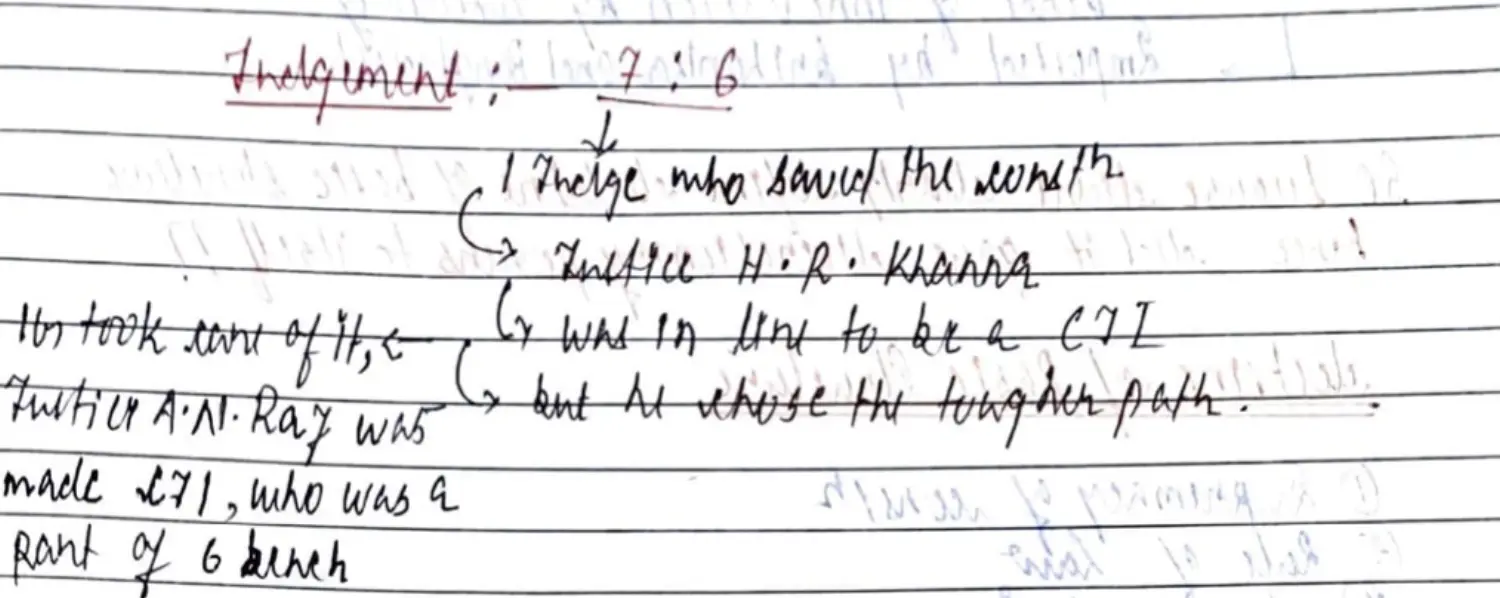 Judgement :- 7 : 6
1 Judge who saved the constn
Justice H. R. Khanna
was in line to be a CJI
but he chose the tougher path.
took care of it,
Justice A.N. Ray was
made CJI, who was a
part of 6 bench